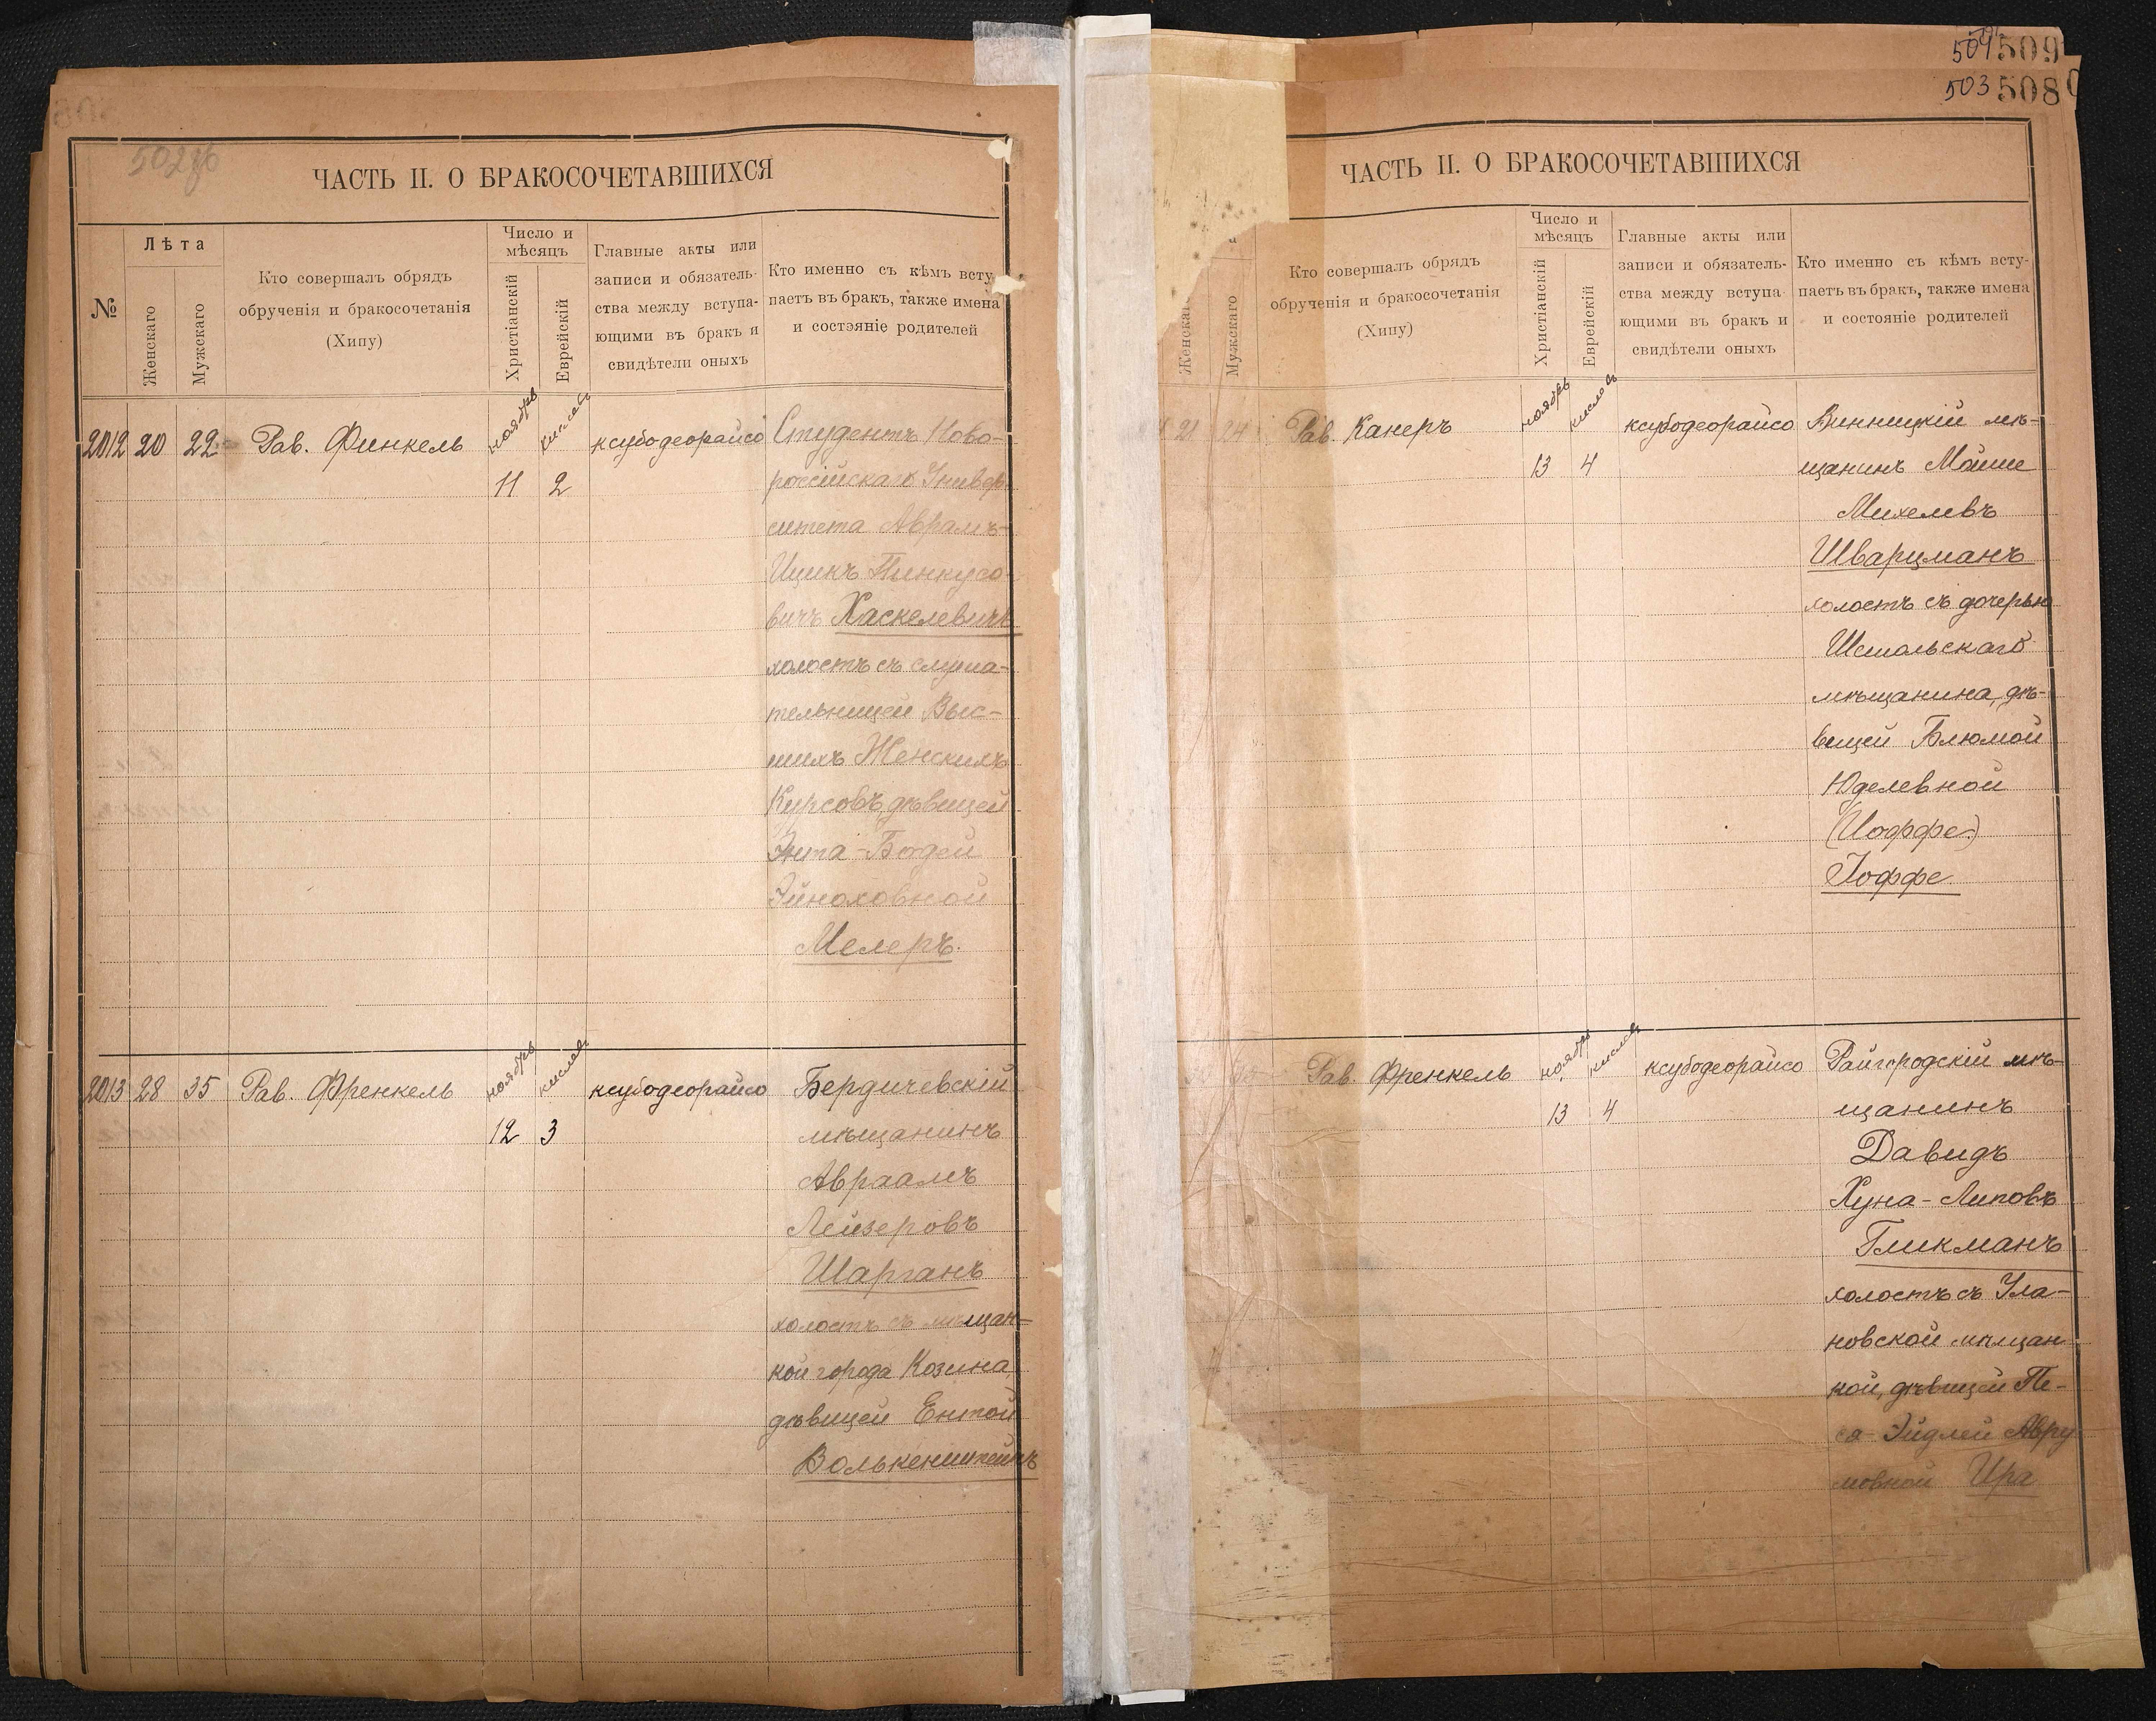 502об
ЧАСТЬ II. О БРАКОСОЧЕТАВШИХСЯ
№
Лѣта
Женскаго
Мужскаго
Кто совершалъ обрядъ
обрученія и бракосочетанія
(Хипу)
Число и
мѣсяцъ
Христіанскій
Еврейскій
Главные акты или
записи и обязатель-
ства между вступа-
ющими въ бракъ и
свидѣтели оныхъ
Кто именно съ кѣмъ всту
паетъ въ бракъ, также имена
и состояніе родителей
2012 20 22 Рав. Финкель ноябрь кислевъ ксубодеорайсо Студентъ Ново-
11 2 россійскаго Универ-
ситета Аврамъ-
Ицикъ Пинкусо-
вичъ Хаскелевичъ
холостъ съ слуша-
тельницей Выс-
шихъ Женскихъ
Курсовъ, дѣвицей
Энта-Бейлей
Эйноховной
Мелеръ.
2013 28 35 Рав. Френкель ноябрь кислевъ ксубодеорайсо Бердичевскій
12 3 мѣщанинъ
Авраамъ
Лейзеровъ
Шарганъ
холостъ съ мѣщан-
кой города Козина,
дѣвицей Ентой
Волькенштейнъ
504 509
503 508
ЧАСТЬ II. О БРАКОСОЧЕТАВШИХСЯ
Женскаго
Мужскаго
Кто совершалъ обрядъ
обрученія и бракосочетанія
(Хипу)
Число и
мѣсяцъ
Христіанскій
Еврейскій
Главные акты или
записи и обязатель-
ства между вступа
ющими въ бракъ и
свидѣтели оныхъ
Кто именно съ кѣмъ всту-
паетъ въ бракъ, также имена
и состояніе родителей
21 24 Рав. Канеръ ноябрь кислевъ ксубодеорайсо Винницкій мѣ-
13 4 щанинъ Мойше
Михелевъ
Шварцманъ
холостъ съ дочерью
Шпольскаго
мѣщанина, дѣ-
вицей Блюмой
Юделевной
(Иоффе)
Іоффе
Рав. Френкель ноябрь кислевъ ксубодеорайсо Райгородскій мѣ-
13 4 щанинъ
Давидъ
Хуна-Липовъ
Гликманъ
холостъ съ Ула-
новской мѣщан
кой, дѣвицей Пе-
са-Эйдлей Авру
мовной Ира